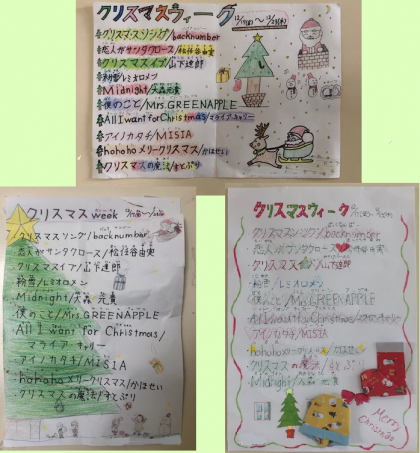 クリスマスウィーク 12/17(水)〜12/23(火)
クリスマスソング/backnumber
恋人がサンタクロース/松任谷由実
クリスマスイブ/山下達郎
粉雪/レミオロメン
Midnight/大森元貴
僕のこと/Mrs.GREENAPPLE
All I want for Christmas/マライア・キャリー
アイノカタチ/MISIA
hohohoメリークリスマス/かはせい
クリスマスの魔法/すとぷり
クリスマスweek
クリスマスソング/backnumber
恋人がサンタクロース/松任谷由実
クリスマスイブ/山下達郎
粉雪/レミオロメン
Midnight/大森元貴
僕のこと/Mrs.GREENAPPLE
All I want for Christmas/
マライア・キャリー
アイノカタチ/MISIA
hohohoメリークリスマス/かはせい
クリスマスの魔法/すとぷり
クリスマスウィーク
クリスマスソング/backnumber
恋人がサンタクロース 松任谷由実
クリスマス /山下達郎
粉雪/レミオロメン
僕のこと/Mrs.GREENAPPLE
All I want for Christmas/マライア・キャリー
アイノカタチ/MISIA
hohohoメリークリスマス/かはせい
クリスマスの魔法/すとぷり
Midnight/大森元貴
Merry
Christmas